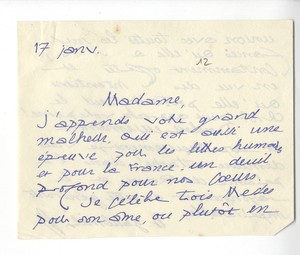 17 janv.
12
Madame,
j'apprends votre grand
malheur, qui est aussi une
épreuve pour les lettres humaines
et pour la France. un deuil
profond pour nos cœurs.
Je célèbre trois Messes
pour son âme, ou plutôt en